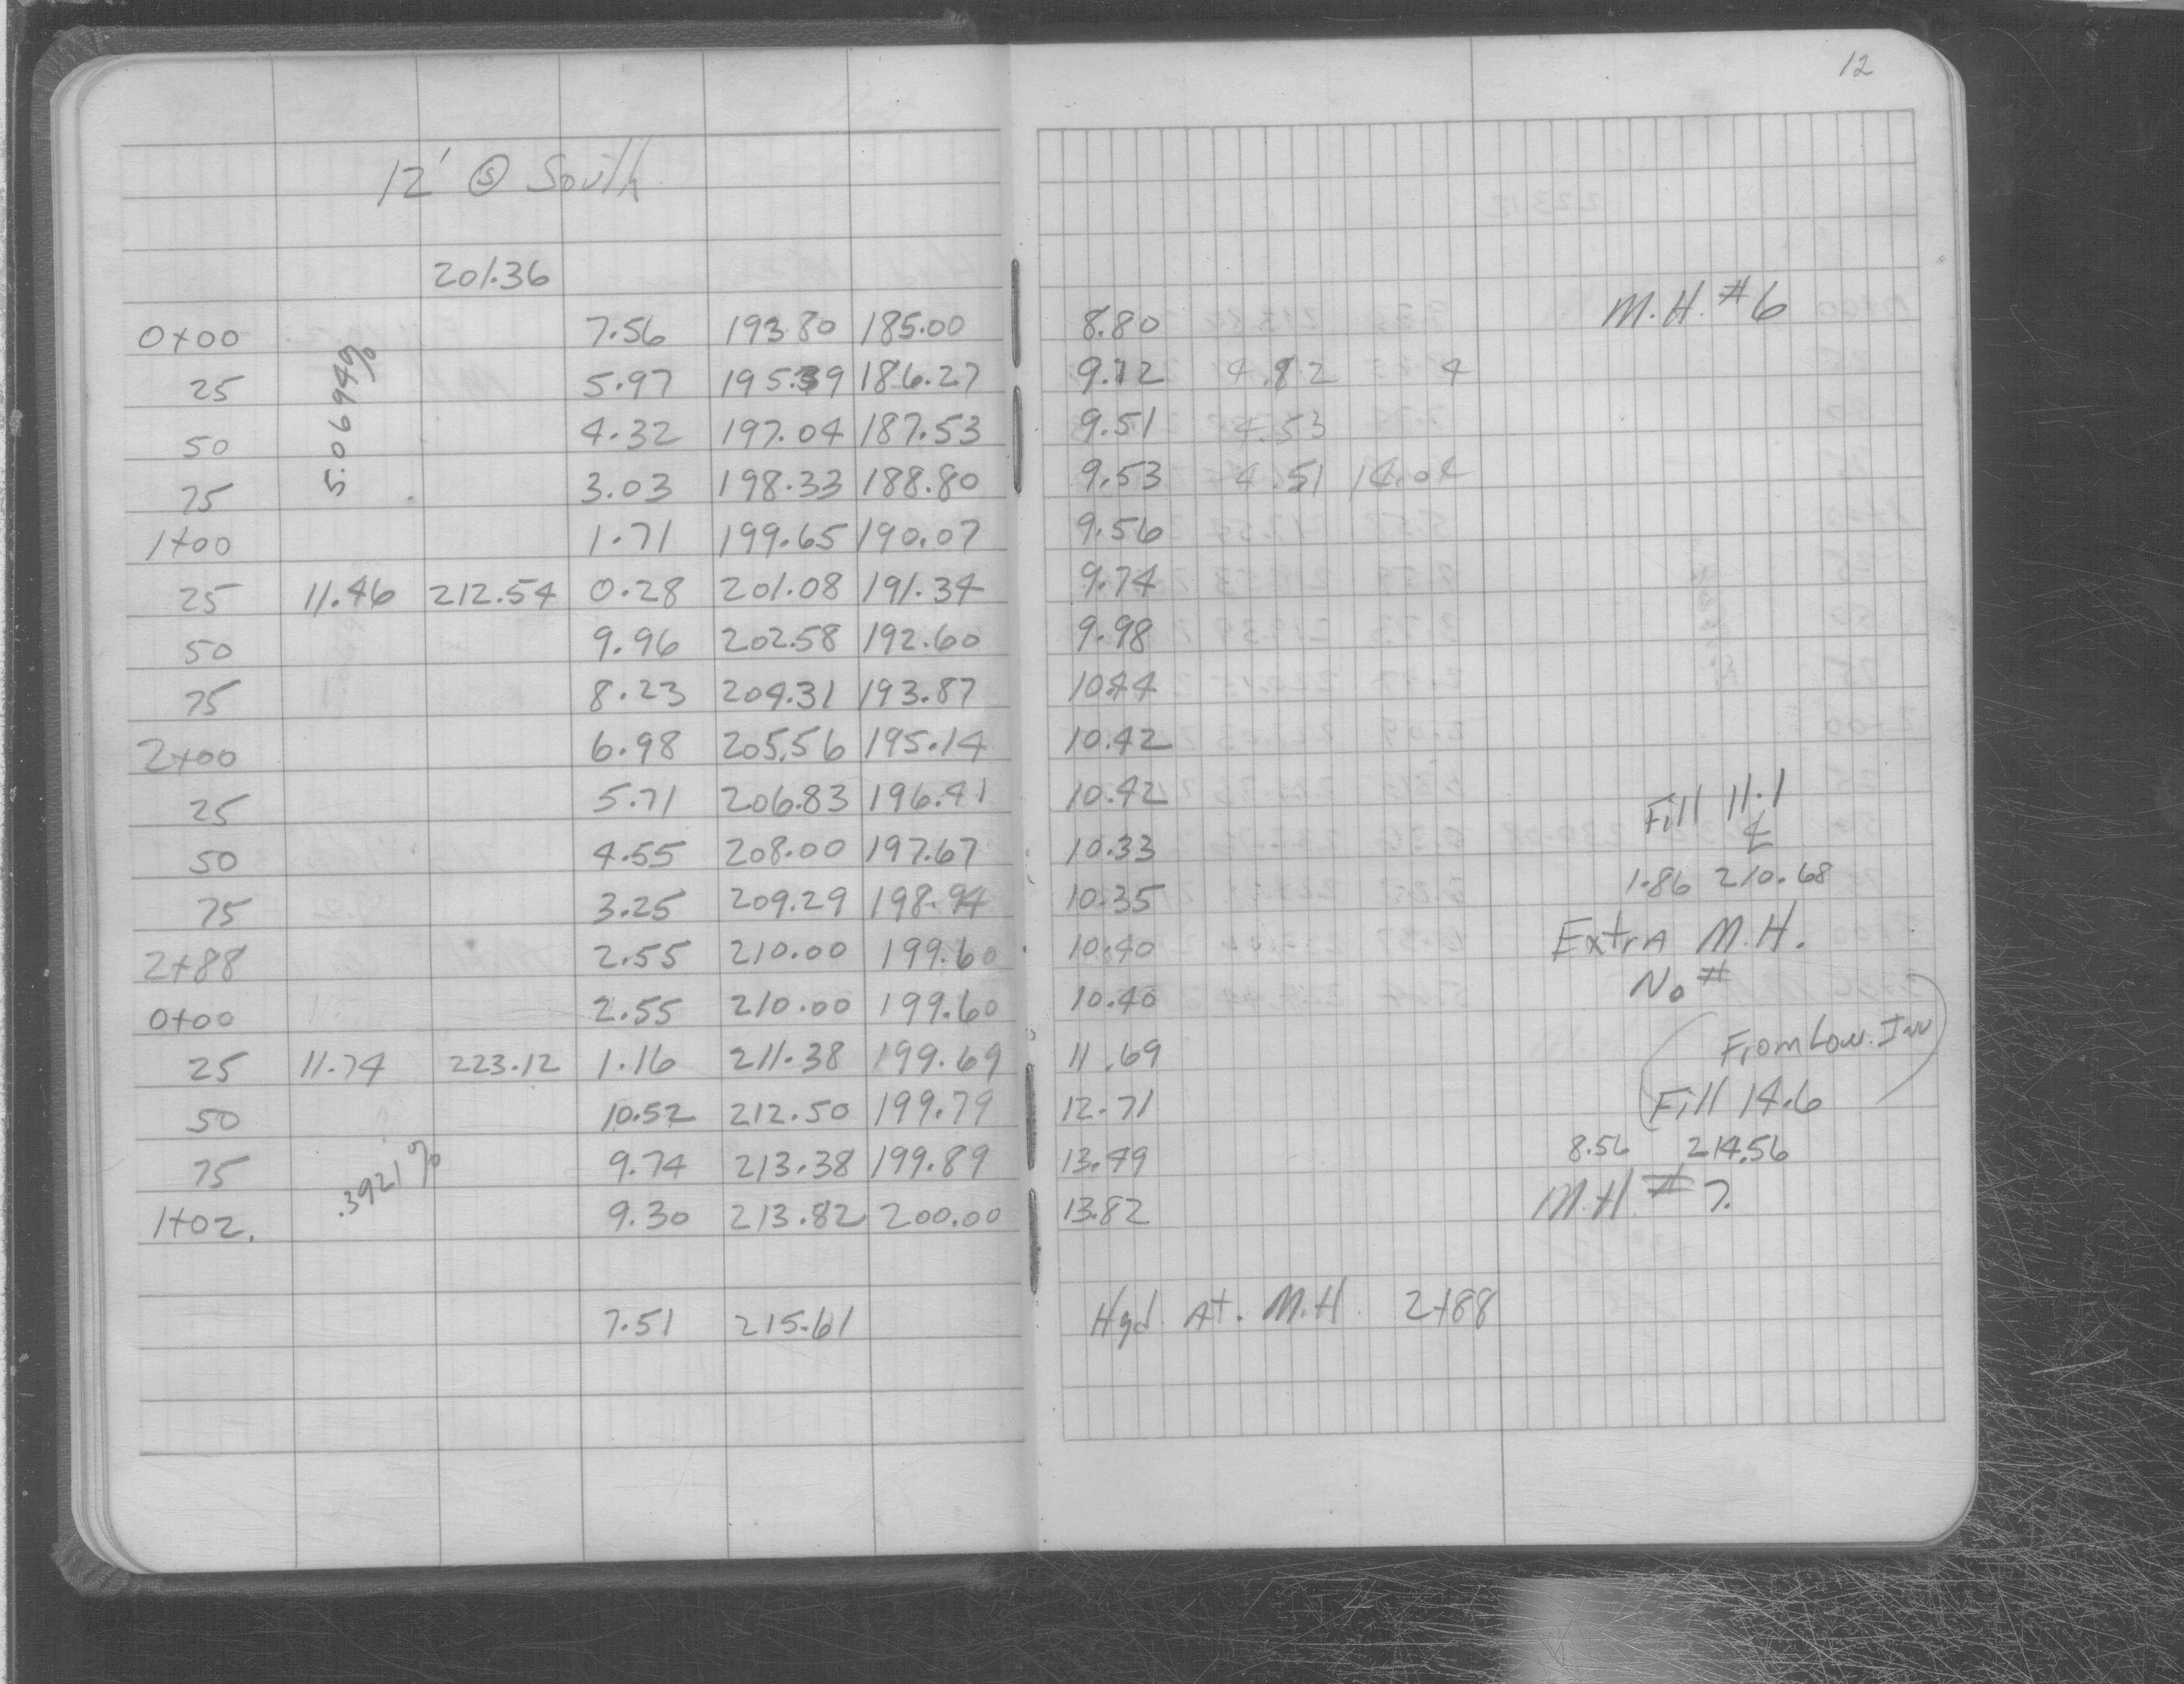 12
12' @ South
201.36
M.H. #6
0+00 7.56 193.80 185.00 8.80
25 5.97 195.39 186.27 9.12 4.82 4
50 4.32 197.04 187.53 9.51 4.53
75 3.03 198.33 188.80 9.53 4.51
5.0694%
1+00 1.71 199.65 190.07 9.56
25 11.46 212.54 0.28 201.08 191.34 9.74
50 9.96 202.58 192.60 9.98
75 8.23 204.31 193.87 10.44
2+00 6.98 205.56 195.14 10.42
25 5.71 206.83 196.41 10.42 Fill 11.1
50 4.55 208.00 197.67 10.33
1.86 210.68
75 3.25 209.29 198.94 10.35
2+88 2.55 210.00 199.60 10.40 Extra M.H.
0+00 2.55 210.00 199.60 10.40 No #
25 11.74 223.12 1.16 211.38 199.69 11.69 From Low. Inv
50 10.52 212.50 199.79 12.71 Fill 14.6
75 9.74 213.38 199.89 13.49 8.56 214.56
.3921%
1+02. 9.30 213.82 200.00 13.82 M.H. # 7.
7.51 215.61 Hyd. At. M.H. 2+88